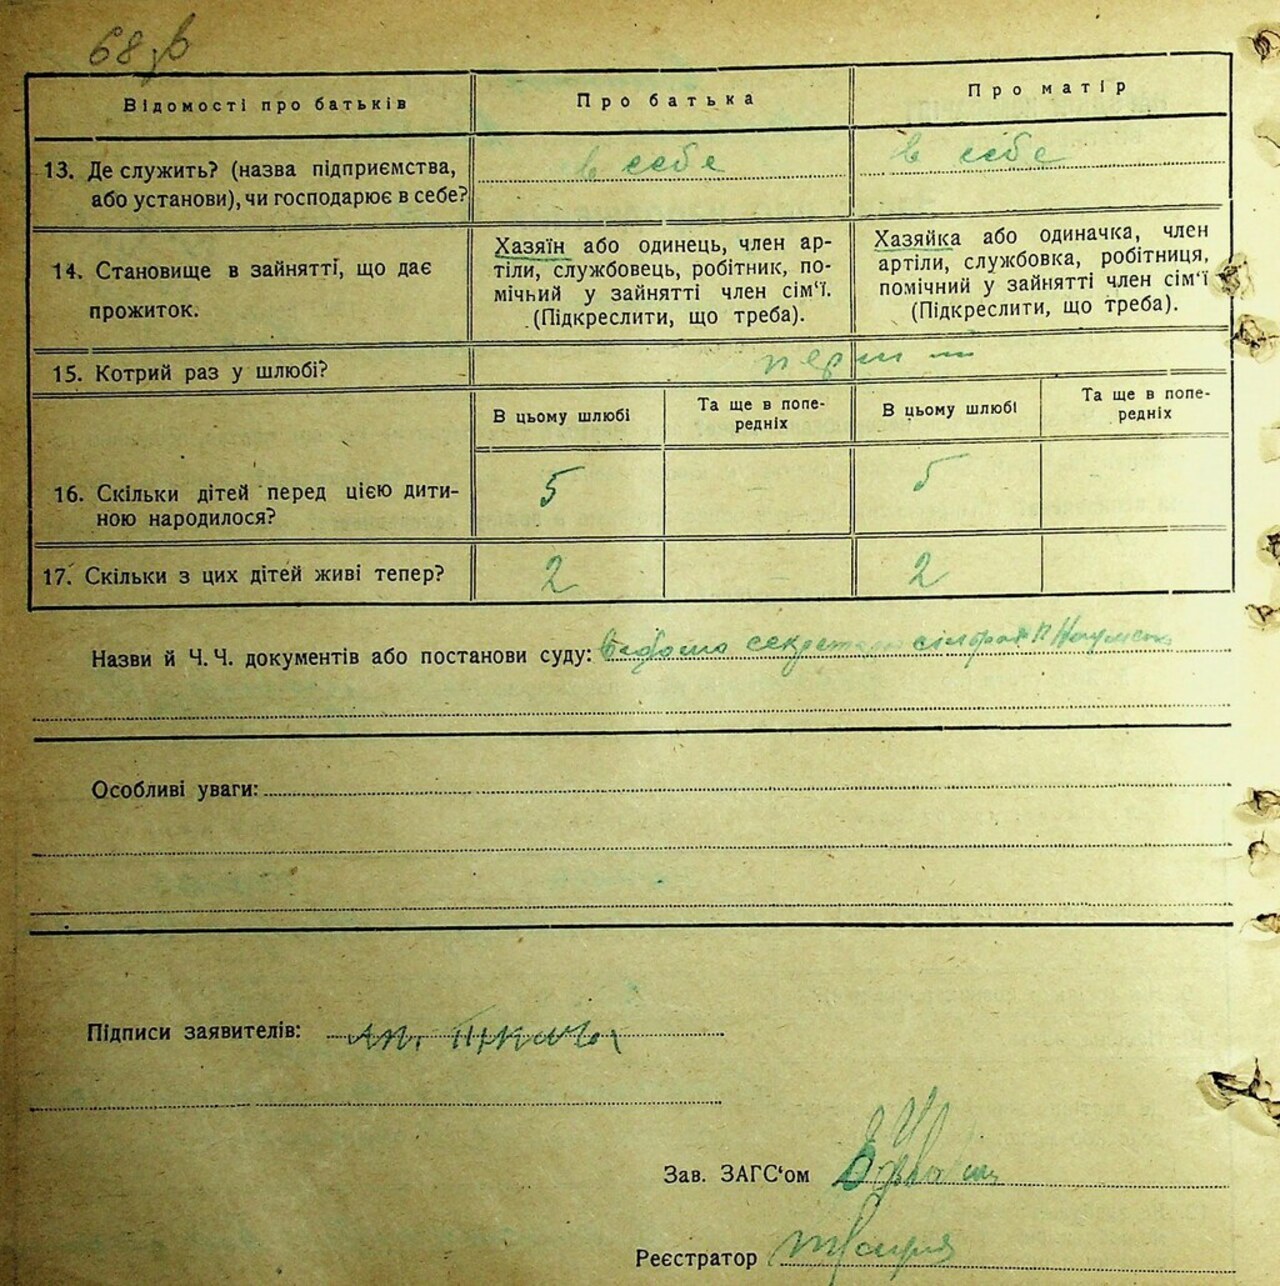 68 зв
Відомості про батьків
Про батька
Про матір
13. Де служить? (назва підприємства,
або установи), чи господарює в себе?
в себе
в себе
14. Становище в зайнятті, що дає
прожиток.
Хазяїн або одинець, член ар-
тіли, службовець, робітник, по-
мічьий у зайнятті член сім'ї.
(Підкреслити, що треба).
Хазяйка або одиначка, член
артіли, службовка, робітниця,
помічний у зайнятті член сім'ї
(Підкреслити, що треба).
15. Котрий раз у шлюбі?
перш
В цьому шлюбі
Та ще в попе-
редніх
В цьому шлюбі
Та ще в попе-
редніх
16. Скільки дітей перед цією дити-
ною народилося?
5
5
17. Скільки з цих дітей живі тепер?
2
2
Назви й Ч. Ч. документів або постанови суду: Відомо секретарю сільради
Особливі уваги:
Підписи заявителів:
Зав. ЗАГС'ом
Реєстратор